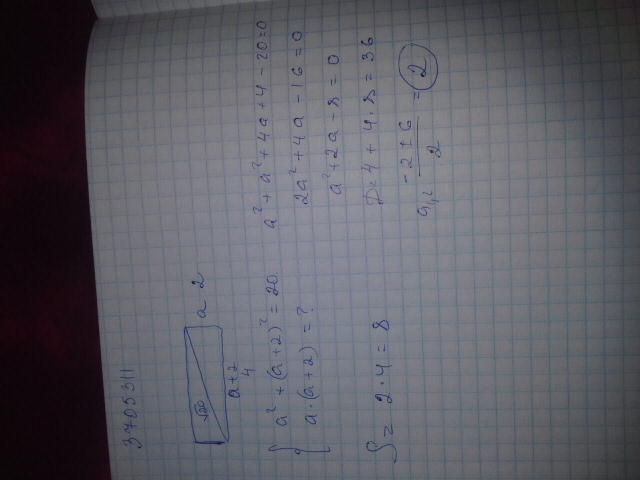 3705311
√20
a 2
a+2
4
{ a² + (a+2)² = 20
a·(a+2) = ?
S = 2·4 = 8
a² + a² + 4a + 4 - 20 = 0
2a² + 4a - 16 = 0
a² + 2a - 8 = 0
D = 4 + 4·8 = 36
a₁,₂ = (-2±6)/2 = 2